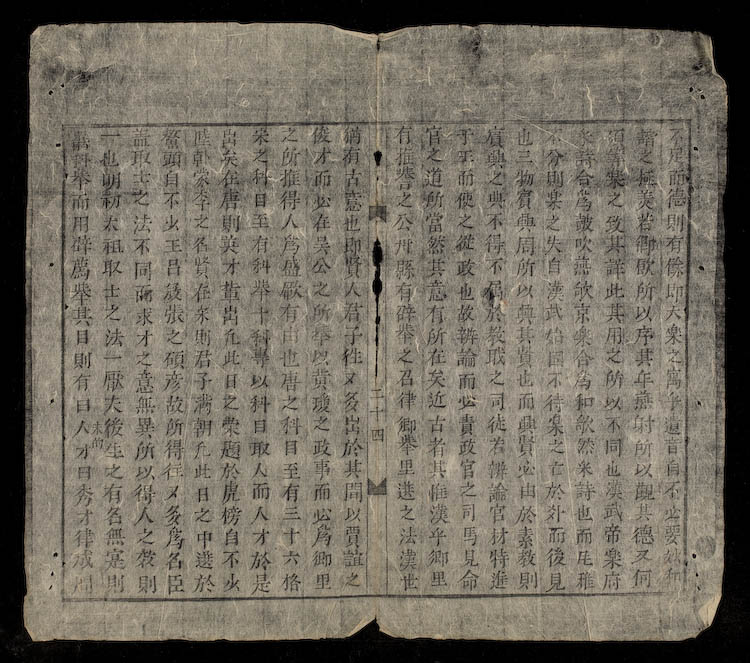 不足而德則有餘即大樂之萬年遺音自不必要妙和
諧之極美若鄉飲所以序其年燕射所以觀其德又何
須雜樂之攷其詳此其用之所以不同也漢武帝樂府
采詩合爲鼓吹燕歌京樂合爲和歌然采詩也而风雅
不分則樂之失自漢武始固不待樂之亡於外而後見
也三物賓興周所以興其賢也而興賢必由於素教則
賓興之典不得不屬於教職之司徒若辨論官材特進
于王而使之從政也故辨論而必責政官之司馬見命
官之道所當然其意有所在矣近古者其惟漢乎鄉里
有推譽之公州縣有辟舉之召律鄉舉里選之法漢世
二十四
猶有古意也即賢人君子徃又多出於其間以賈誼之
俊才而必在吳公之所舉以黄瓊之政事而必爲鄉里
之所推得人爲盛歐有由也唐之科目至有三十六格
宋之科目至有科舉十科專以科目取人而人才於是
出矣在唐則英才輩出凢此日之榮題於虎榜自不少
陸韓家李之名賢在宋則君子满朝凢此日之中選於
鰲頭自不少王吕晟張之碩彦故所得徃又多爲名臣
盖取士之法不同而求才之意無異所以得人之效則
一也明初太祖取士之法一厭夫後生之有名無寔則
罷科舉而用辟薦舉其目則有曰人才曰秀才律戒問
未的